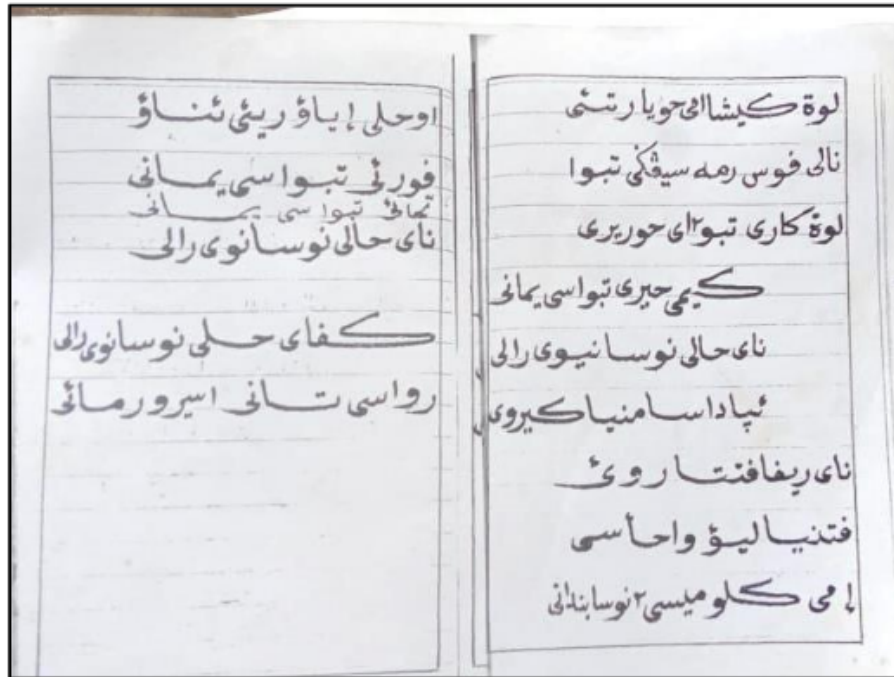 لوة كيشاامى حويا رتىئى
نالى فوس رمه سيڤكى تبوا
لوة كارى تبو٢اى حوريرى
كيمى حيرى تبواسى يمانى
ناى حالى نوسانيوى رالى
ئپاداسامنياكيروى
ناى ريفافنتاروئ
فتدنياليؤ واحأسى
إمى كلوميسى٢نوسابندانى
اوحلى إياؤ ريئى ئناؤ
فورئى تبوا سى يمانى
تهائى تبوا سى يمانى
ناى حالى نوسانوى رالى
كفاى حلى نوسانوى رالى
رواسى تانى اسيرورمائى